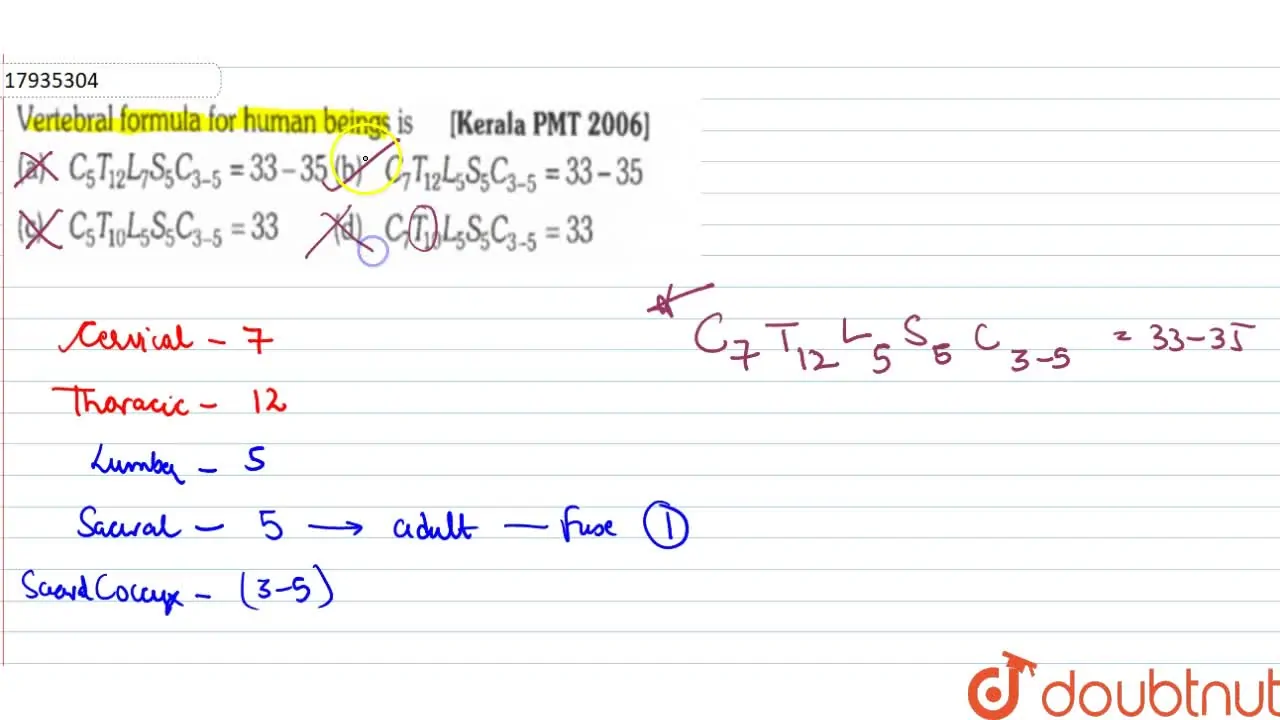 17935304
Vertebral formula for human beings is [Kerala PMT 2006]
(a) C₅T₁₂L₇S₅C₃₋₅ = 33 – 35 (b) C₇T₁₂L₅S₅C₃₋₅ = 33 – 35
(c) C₅T₁₀L₅S₅C₃₋₅ = 33 (d) C₇T₁₀L₅S₅C₃₋₅ = 33
C₇ T₁₂ L₅ S₅ C₃₋₅ = 33-35
Cervical - 7
Thoracic - 12
Lumba - 5
Sacral - 5 → adult — Fuse ①
Coccyx - (3-5)
doubtnut